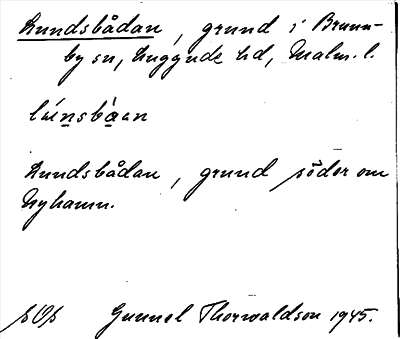 Lundsbådan, grund i Brunn-
by sn, Luggude hd, Malm. l.
lúnsbàan
Lundsbådan, grund söder om
Nyhamn.
Gunnel Thorwaldson 1945.